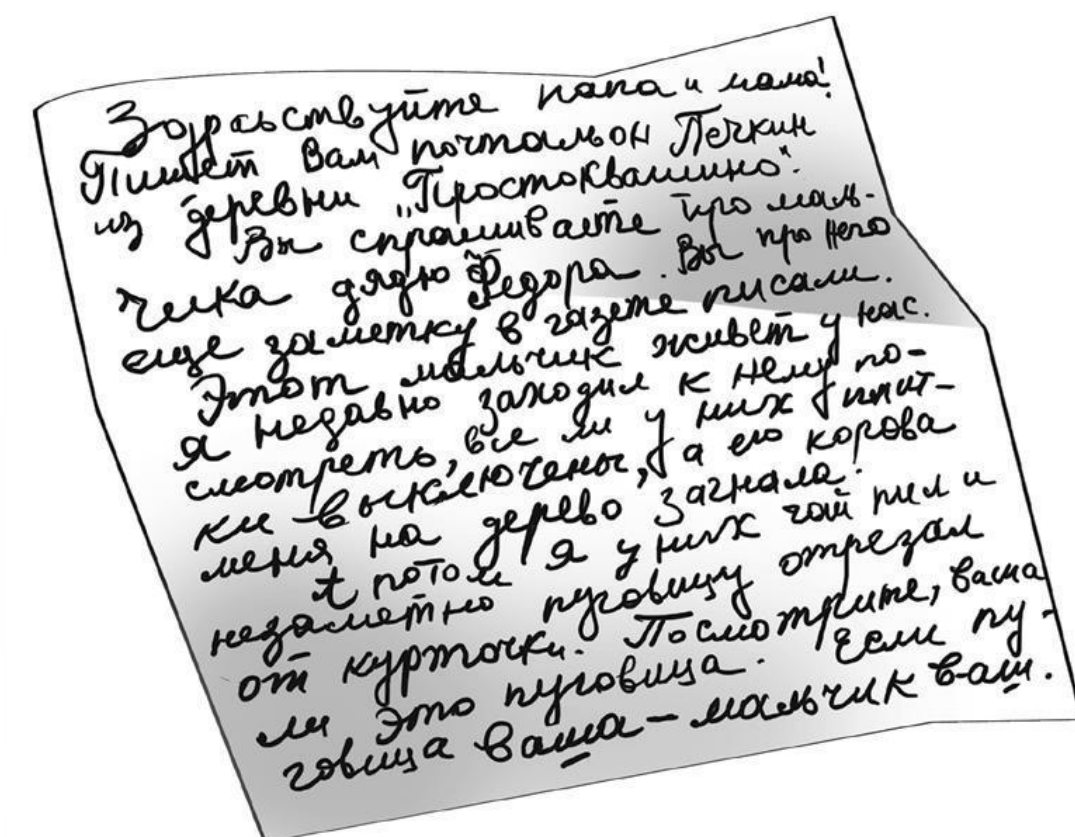 Здравствуйте папа и мама!
Пишет Вам почтальон Печкин
из деревни „Простоквашино".
Вы спрашиваете про маль-
чика дядю Федора. Вы про него
еще заметку в газете писали.
Этот мальчик живет у нас.
Я недавно заходил к нему по-
смотреть, все ли у них плит-
ки выключены, а его корова
меня на дерево загнала.
А потом я у них чай пил и
незаметно пуговицу отрезал
от курточки. Посмотрите, ваша
ли это пуговица. Если пу-
говица ваша – мальчик ваш.